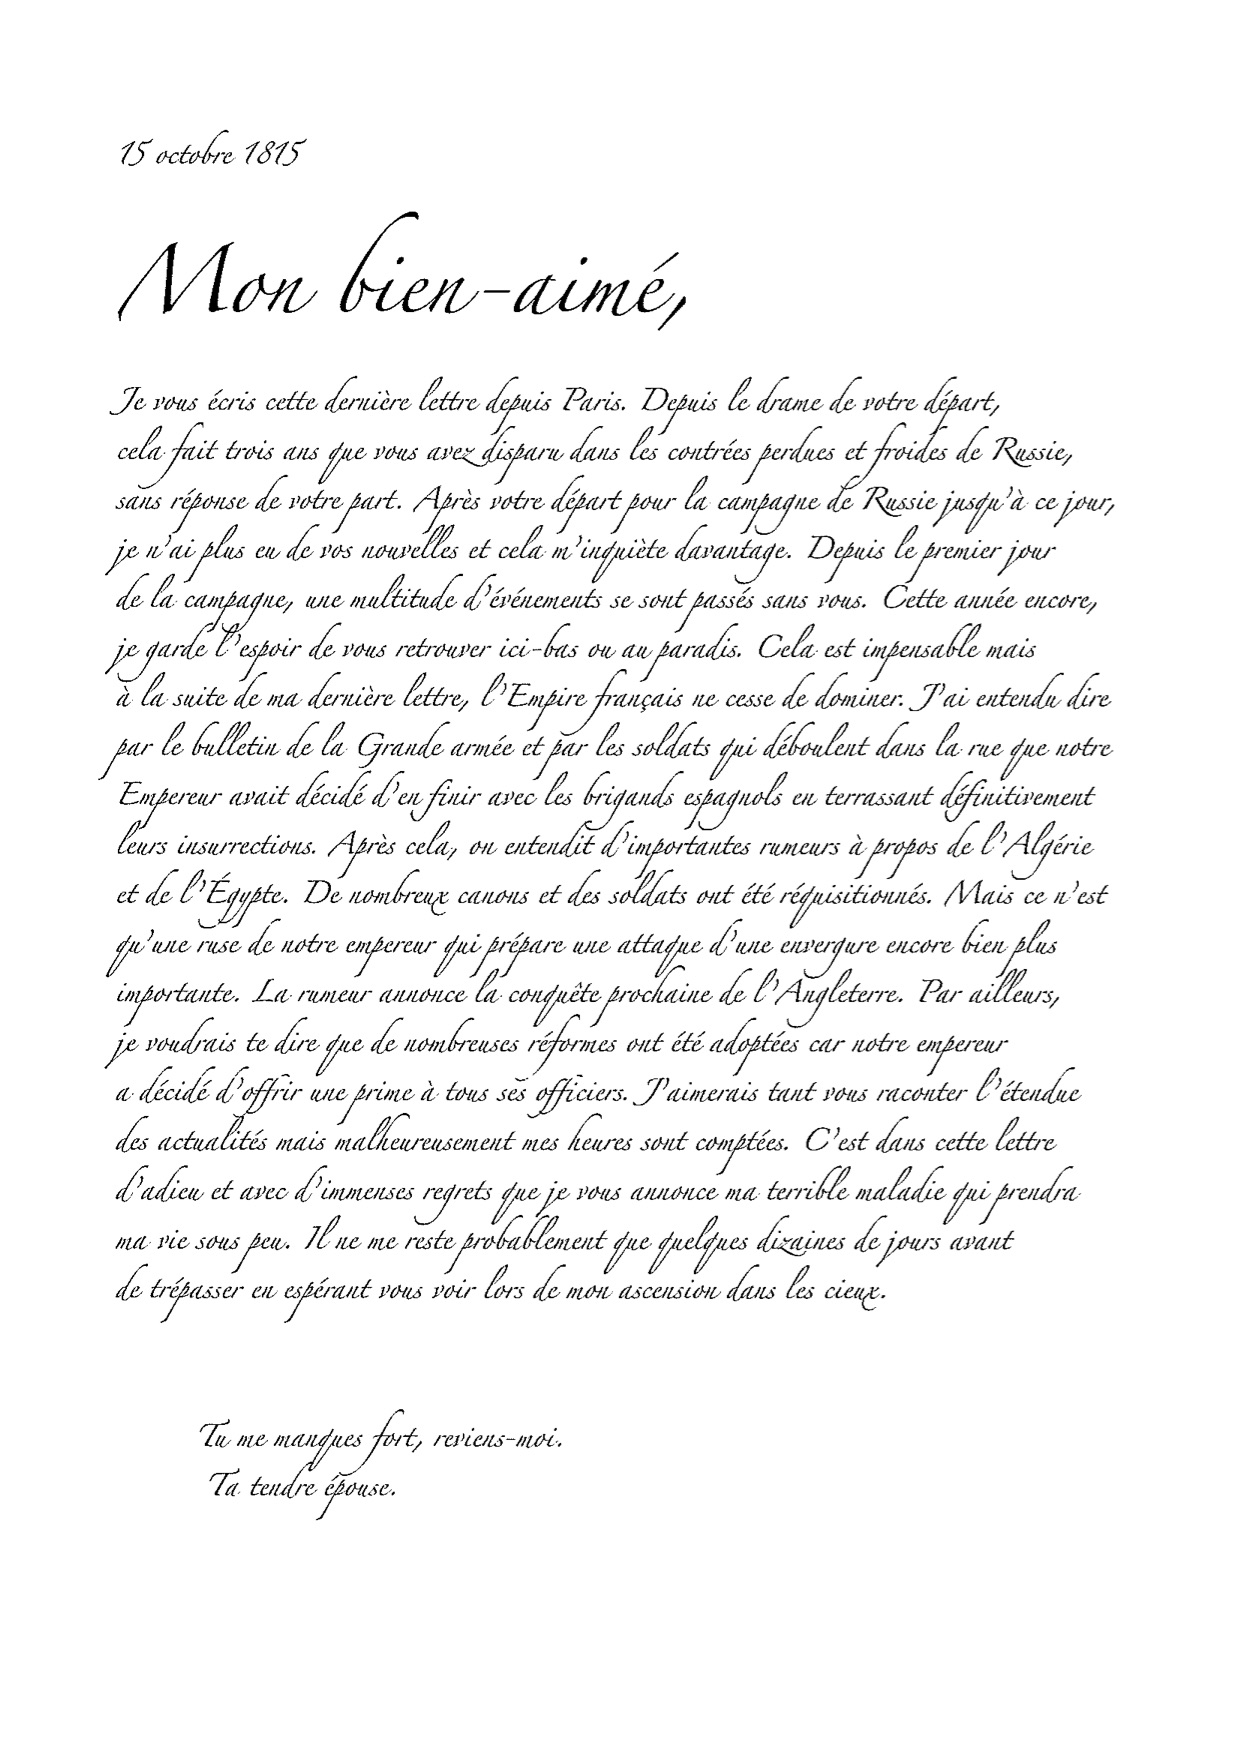 15 octobre 1815
Mon bien-aimé,
Je vous écris cette dernière lettre depuis Paris. Depuis le drame de votre départ,
cela fait trois ans que vous avez disparu dans les contrées perdues et froides de Russie,
sans réponse de votre part. Après votre départ pour la campagne de Russie jusqu'à ce jour,
je n'ai plus eu de vos nouvelles et cela m'inquiète davantage. Depuis le premier jour
de la campagne, une multitude d'événements se sont passés sans vous. Cette année encore,
je garde l'espoir de vous retrouver ici-bas ou au paradis. Cela est impensable mais
à la suite de ma dernière lettre, l'Empire français ne cesse de dominer. J'ai entendu dire
par le bulletin de la Grande armée et par les soldats qui déboulent dans la rue que notre
Empereur avait décidé d'en finir avec les brigands espagnols en terrassant définitivement
leurs insurrections. Après cela, on entendit d'importantes rumeurs à propos de l'Algérie
et de l'Égypte. De nombreux canons et des soldats ont été réquisitionnés. Mais ce n'est
qu'une ruse de notre empereur qui prépare une attaque d'une envergure encore bien plus
importante. La rumeur annonce la conquête prochaine de l'Angleterre. Par ailleurs,
je voudrais te dire que de nombreuses réformes ont été adoptées car notre empereur
a décidé d'offrir une prime à tous ses officiers. J'aimerais tant vous raconter l'étendue
des actualités mais malheureusement mes heures sont comptées. C'est dans cette lettre
d'adieu et avec d'immenses regrets que je vous annonce ma terrible maladie qui prendra
ma vie sous peu. Il ne me reste probablement que quelques dizaines de jours avant
de trépasser en espérant vous voir lors de mon ascension dans les cieux.
Tu me manques fort, reviens-moi.
Ta tendre épouse.